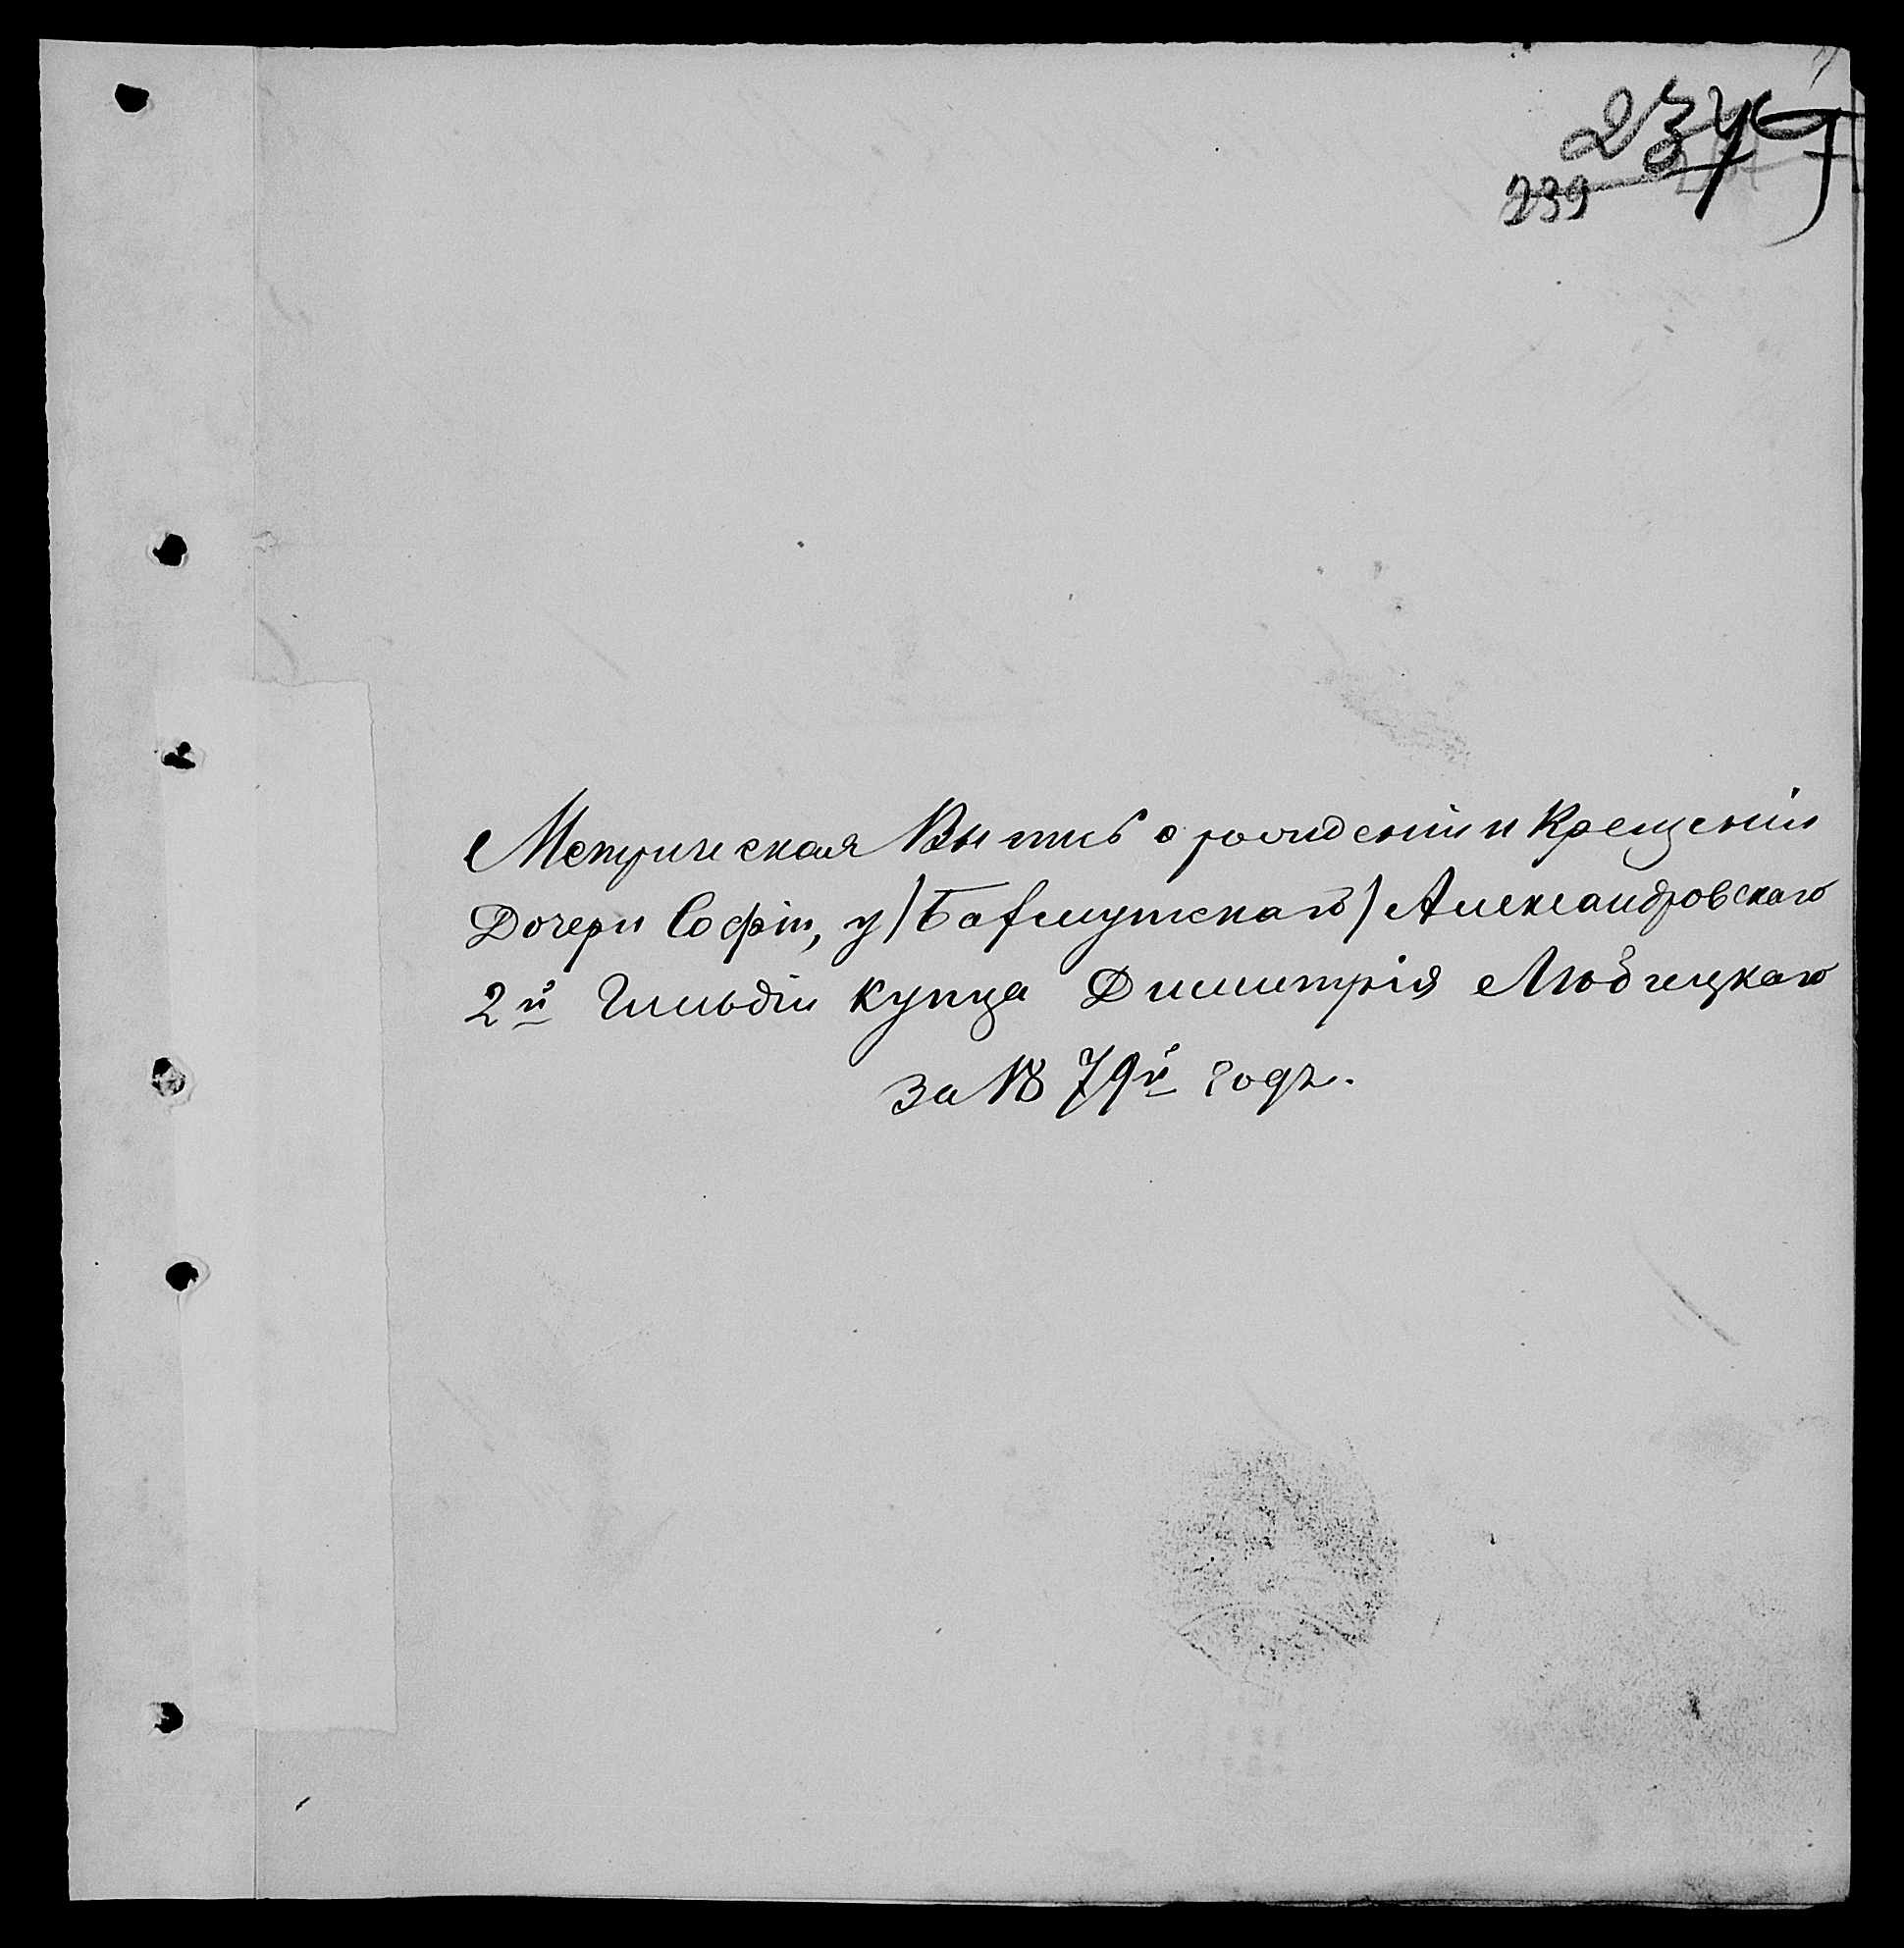 239
Метрическая Выпись о рождении и Крещеніи
Дочери Софіи, у /Бахмутскаго/ Александровскаго
2й Гильдіи купца Димитрія Любицкаго
за 1879й годъ.